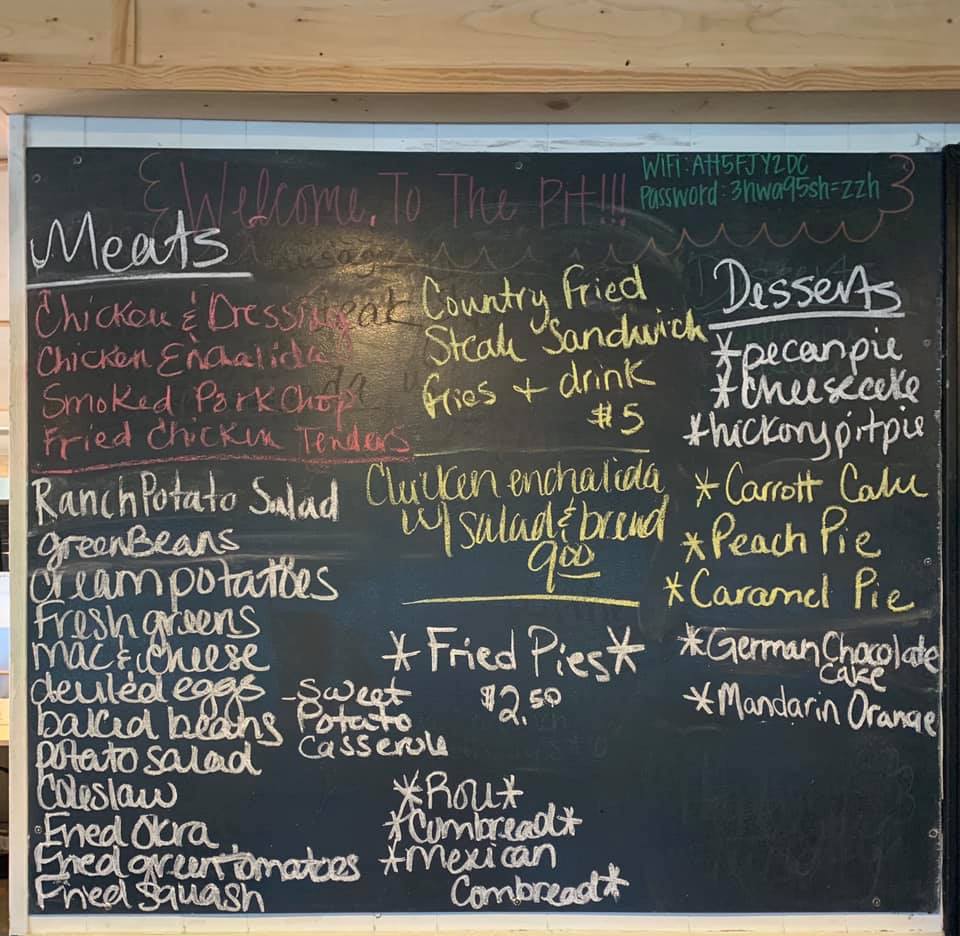 Welcome To The Pit!!!
WiFi: ATt5FJY2DC
Password: 3hwa95sh=zzh
Meats
Chicken & Dressing
Chicken Enchalida
Smoked Pork Chop
Fried Chicken Tenders
Ranch Potato Salad
green Beans
cream potatoes
Fresh greens
mac & cheese
deviled eggs
baked beans
potato salad
Coleslaw
Fried Okra
Fried green tomatoes
Fried Squash
- Sweet
Potato
Casserole
Country Fried
Steak Sandwich
fries + drink
$5
Chicken enchalida
w/ salad & bread
9.00
*Fried Pies*
$2.50
*Roll*
*Cornbread*
*Mexican
Cornbread*
Desserts
*pecan pie
*Cheesecake
*hickory pit pie
*Carrott Cake
*Peach Pie
*Caramel Pie
*German Chocolate
cake
*Mandarin Orange